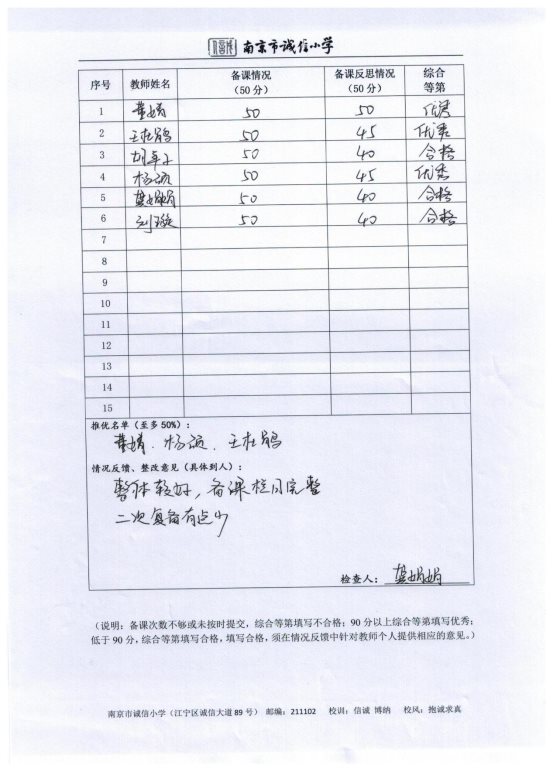 南京市诚信小学
序号 教师姓名 备课情况（50分） 备课反思情况（50分） 综合等第
1 董婧 50 50 优秀
2 王杜鹃 50 45 优秀
3 50 40 合格
4 杨 50 45 优秀
5 龚娟娟 50 40 合格
6 刘璇 50 40 合格
7
8
9
10
11
12
13
14
15
推优名单（至多50%）：
董婧、杨 、王杜鹃
情况反馈、整改意见（具体到人）：
整体较好，备课栏目完整
二次复备有点少
检查人：龚娟娟
（说明：备课次数不够或未按时提交，综合等第填写不合格；90分以上综合等第填写优秀；
低于90分，综合等第填写合格，填写合格，须在情况反馈中针对教师个人提供相应的意见。）
南京市诚信小学（江宁区诚信大道89号） 邮编：211102 校训：信诚 博纳 校风：抱诚求真